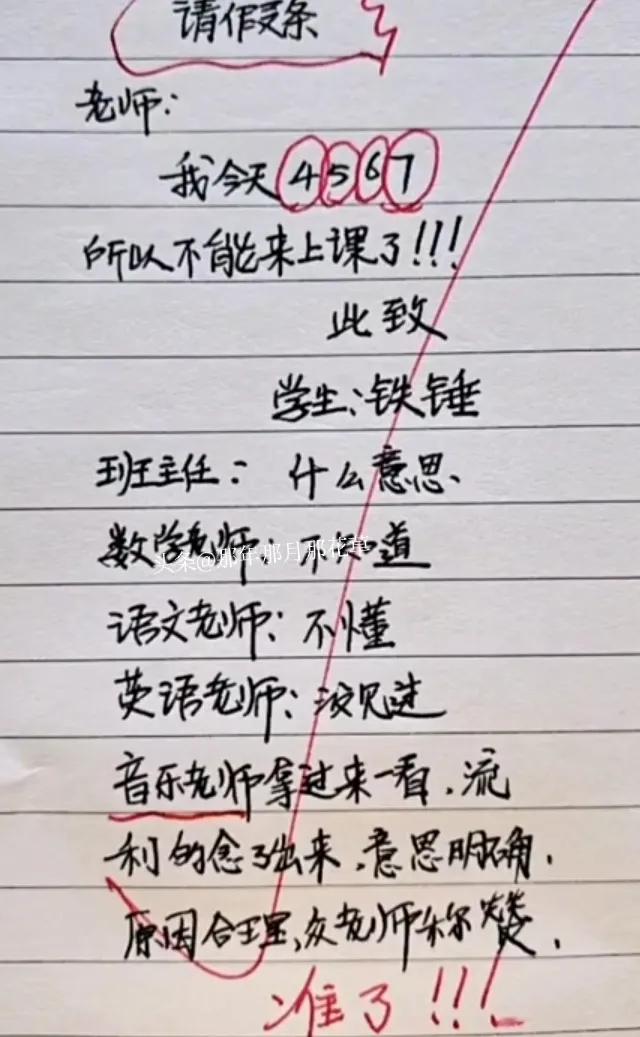 请假条
老师：
我今天4567
所以不能来上课了!!!
此致
学生：铁锤
班主任：什么意思、
数学老师：不知道
头条@那年那月那花草
语文老师：不懂
英语老师：没见过
音乐老师拿过来一看，流
利的念了出来，意思明确，
原因合理，众老师称赞，
准了!!!